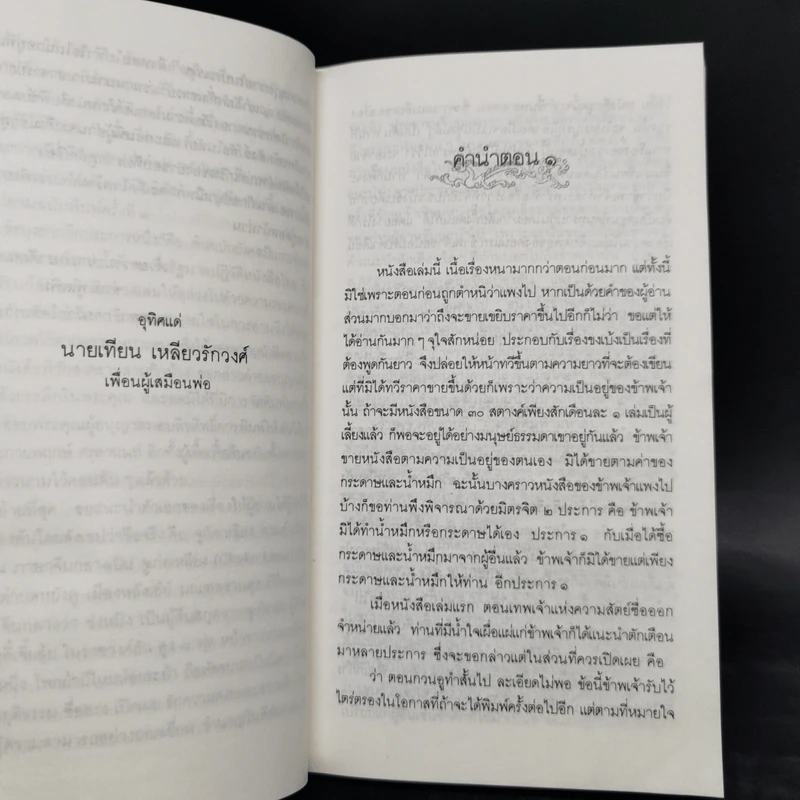 อุทิศแด่
นายเทียน เหลียวรักวงศ์
เพื่อนผู้เสมือนพ่อ
คำนำตอน ๑
หนังสือเล่มนี้ เนื้อเรื่องหนามากกว่าตอนก่อนมาก แต่ทั้งนี้
มิใช่เพราะตอนก่อนถูกตำหนิว่าแพงไป หากเป็นด้วยคำของผู้อ่าน
ส่วนมากบอกมาว่าถึงจะขายเขยิบราคาขึ้นไปอีกก็ไม่ว่า ขอแต่ให้
ได้อ่านกันมาก ๆ จุใจสักหน่อย ประกอบกับเรื่องขงเบ้งเป็นเรื่องที่
ต้องพูดกันยาว จึงปล่อยให้หน้าทวีขึ้นตามความยาวที่จะต้องเขียน
แต่ที่มิได้ทวีราคาขายขึ้นด้วยก็เพราะว่าความเป็นอยู่ของข้าพเจ้า
นั้น ถ้าจะมีหนังสือขนาด ๓๐ สตางค์เพียงสักเดือนละ ๑ เล่มเป็นผู้
เลี้ยงแล้ว ก็พอจะอยู่ได้อย่างมนุษย์ธรรมดาเขาอยู่กันแล้ว ข้าพเจ้า
ขายหนังสือตามความเป็นอยู่ของตนเอง มิได้ขายตามค่าของ
กระดาษและน้ำหมึก ฉะนั้นบางคราวหนังสือของข้าพเจ้าแพงไป
บ้างก็ขอท่านพึงพิจารณาด้วยมิตรจิต ๒ ประการ คือ ข้าพเจ้า
มิได้ทำน้ำหมึกหรือกระดาษได้เอง ประการ ๑ กับเมื่อได้ซื้อ
กระดาษและน้ำหมึกมาจากผู้อื่นแล้ว ข้าพเจ้าก็มิได้ขายแต่เพียง
กระดาษและน้ำหมึกให้ท่าน อีกประการ ๑
เมื่อหนังสือเล่มแรก ตอนเทพเจ้าแห่งความสัตย์ซื่อออก
จำหน่ายแล้ว ท่านที่มีน้ำใจเผื่อแผ่แก่ข้าพเจ้าก็ได้แนะนำตักเตือน
มาหลายประการ ซึ่งจะขอกล่าวแต่ในส่วนที่ควรเปิดเผย คือ
ว่า ตอนกวนอูทำสั้นไป ละเอียดไม่พอ ข้อนี้ข้าพเจ้ารับไว้
ไตร่ตรองในโอกาสที่ถ้าจะได้พิมพ์ครั้งต่อไปอีก แต่ตามที่หมายใจ